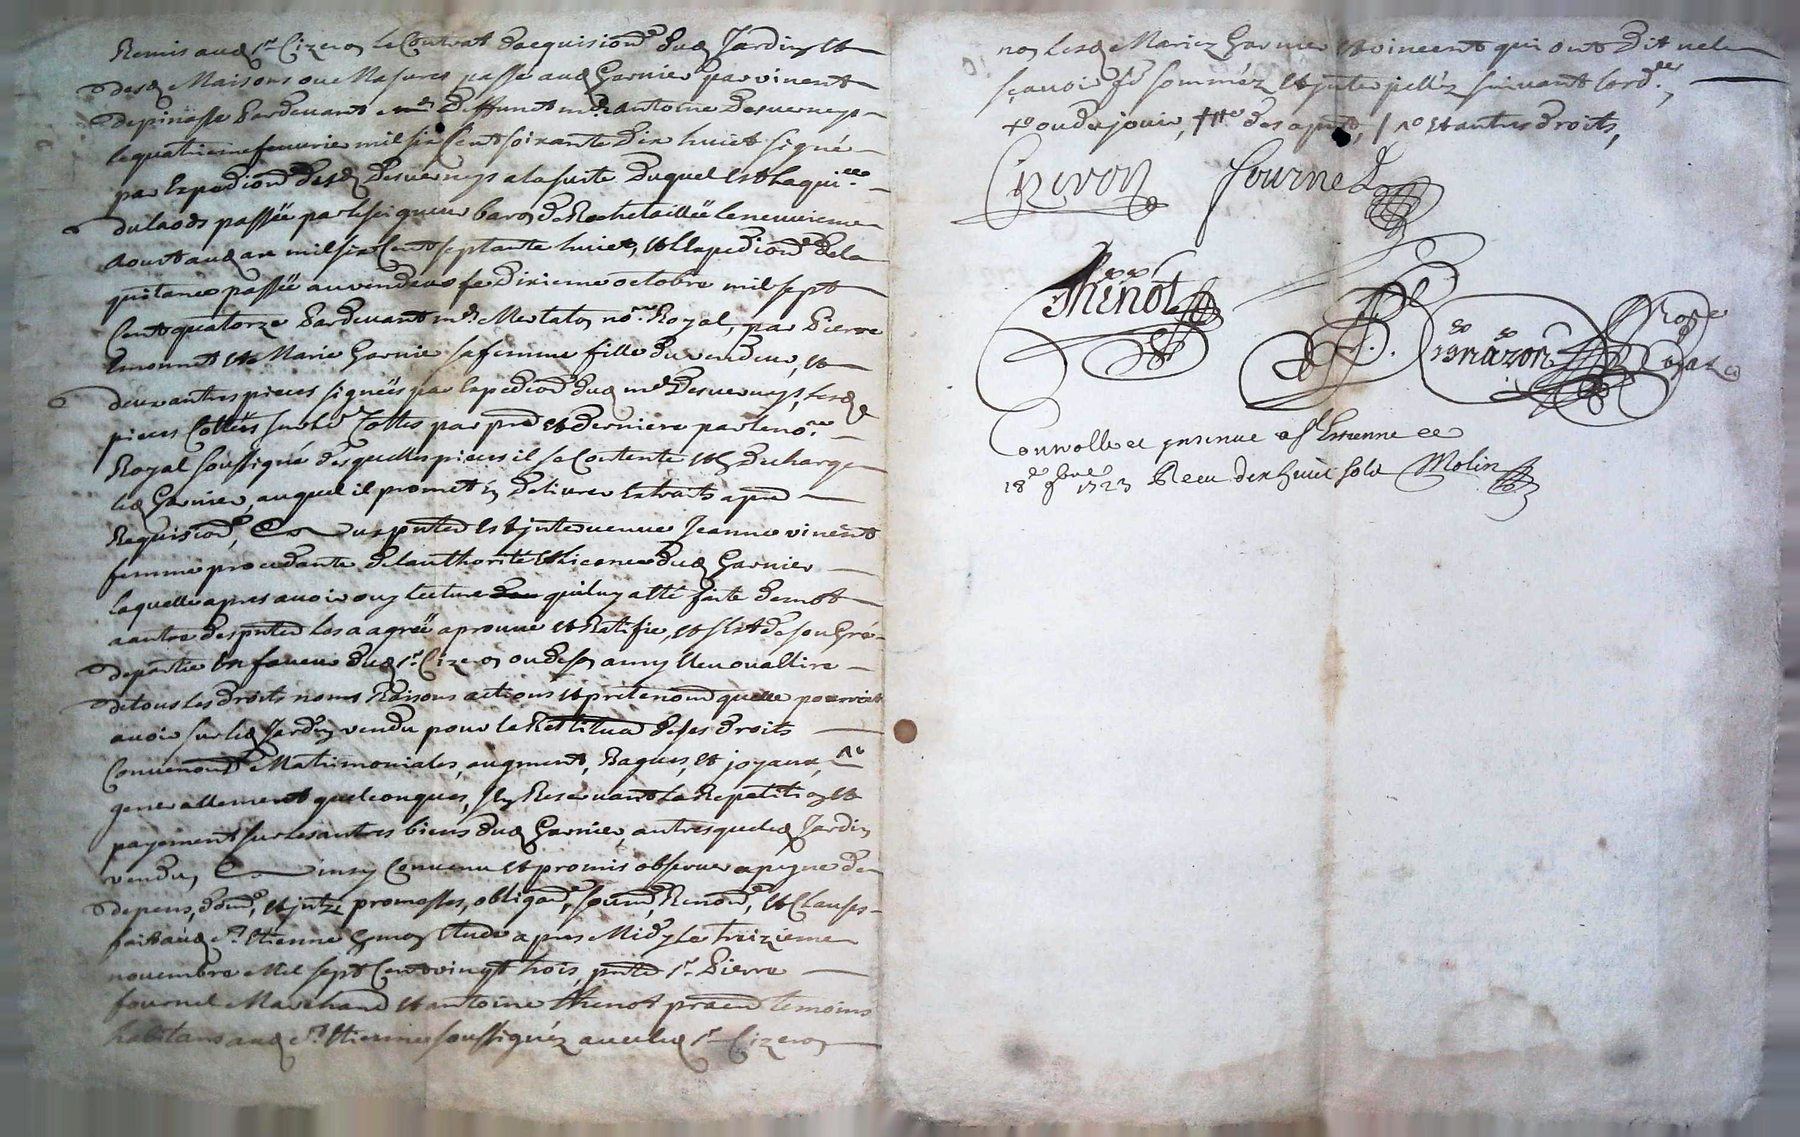 Remis aud sr Cizeron le Contrat dacquision dud Jardin et
desd Maisons ou Masures passé aud Garnier par vincent
depinasse pardevant deffunt me antoine Desverneys
le quatrieme feuurier mil six Cent soixante dix huict signé
par Expedion dud Desverneys a la suite Duquel est laquitce
du laods passée par le seigneur baron de Rochetaillée le neuuieme
Aoust aud an mil six Cent septante huict, et lexpedion de la
quitance passée au vendeur le dixieme octobre mil sept
Cent quatorze pardevant me Mertaton nore Royal, par Pierre
Emonnet et Marie Garnier sa femme fille du vendeur, et
deux autres pieces signées par Expedion dud me Desverneys, lesd
pieces Cottées par pre et derniere par le nore
Royal soussigné desquelles pieces il se Contente et en decharge
led Garnier, auquel il promet en delivrer Extraits a pre
Requision, aux pntes est interuenue Jeanne vincent
femme procedante de lauthorité et licence dud Garnier
laquelle apres auoir ouy lecture quil luy a été faite de mot
a autre des pntes les a agréé aprouué et Ratifie, et sest de son Gré
departie en faueur dud sr Cizeron ou de son amy Eleu ou a Elire
de tous les droits noms Raisons actions et pretentions quelle pourroit
auoir sur led Jardin vendu pour la Restituon de ses droits
Conuenons Matrimoniales, augment, Bagues, et joyaux,
generallement quelconques, sen Reseruant la Repetition et
payement sur les autres biens dud Garnier, autres que led Jardin
vendu, ainsy Conuenu et promis obseruer a peyne de
depens, dom, et intz promesses, obligaon, soumon, Renonon, et Clauses
fait aud st Etienne Etude apres Midy le treizieme
nouembre Mil sept Cent vingt trois, pntes sr Pierre
fournel Marchand et antoine thenot pracn temoins
habitans aud st Etienne soussignéz auec led sr Cizeron
non lesd Mariez Garnier et vincent qui ont dit ne le
sçauoir de sommez et interpelléz suiuant lordce
ou du jouir, des apnts, / et autres droits,
Cizeron fournel
Thenot
Controllé et insinué a st Estienne ce
18e 9bre 1723 Receu dix huict sols Molin